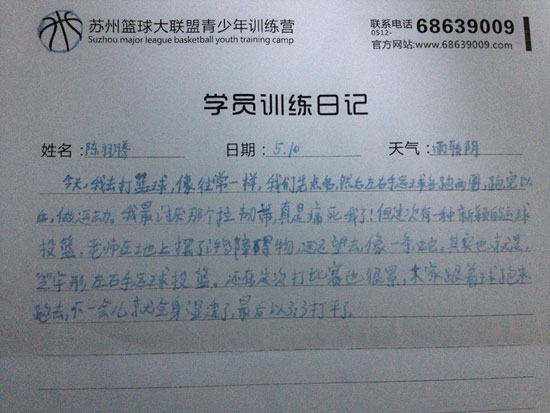 苏州篮球大联盟青少年训练营
Suzhou major league basketball youth training camp
联系电话 0512- 68639009
官方网站:www.68639009.com
学员训练日记
姓名: 陈 日期: 5.10 天气: 雨转阴
今天,我去打篮球,像往常一样,我们先点名,然后左右手运球各跑两圈,跑完以
后,做运动。我最讨厌那个拉韧带,真是痛死我了!但这次有一种新颖的运球
投篮,老师在地上摆了 障碍物,远远望去像一条 ,其实也就是
之字形左右手运球投篮。还有这次打比赛也很累,大家跟着球跑来
跑去,不一会儿就全身湿透了,最后以3:3打平了。